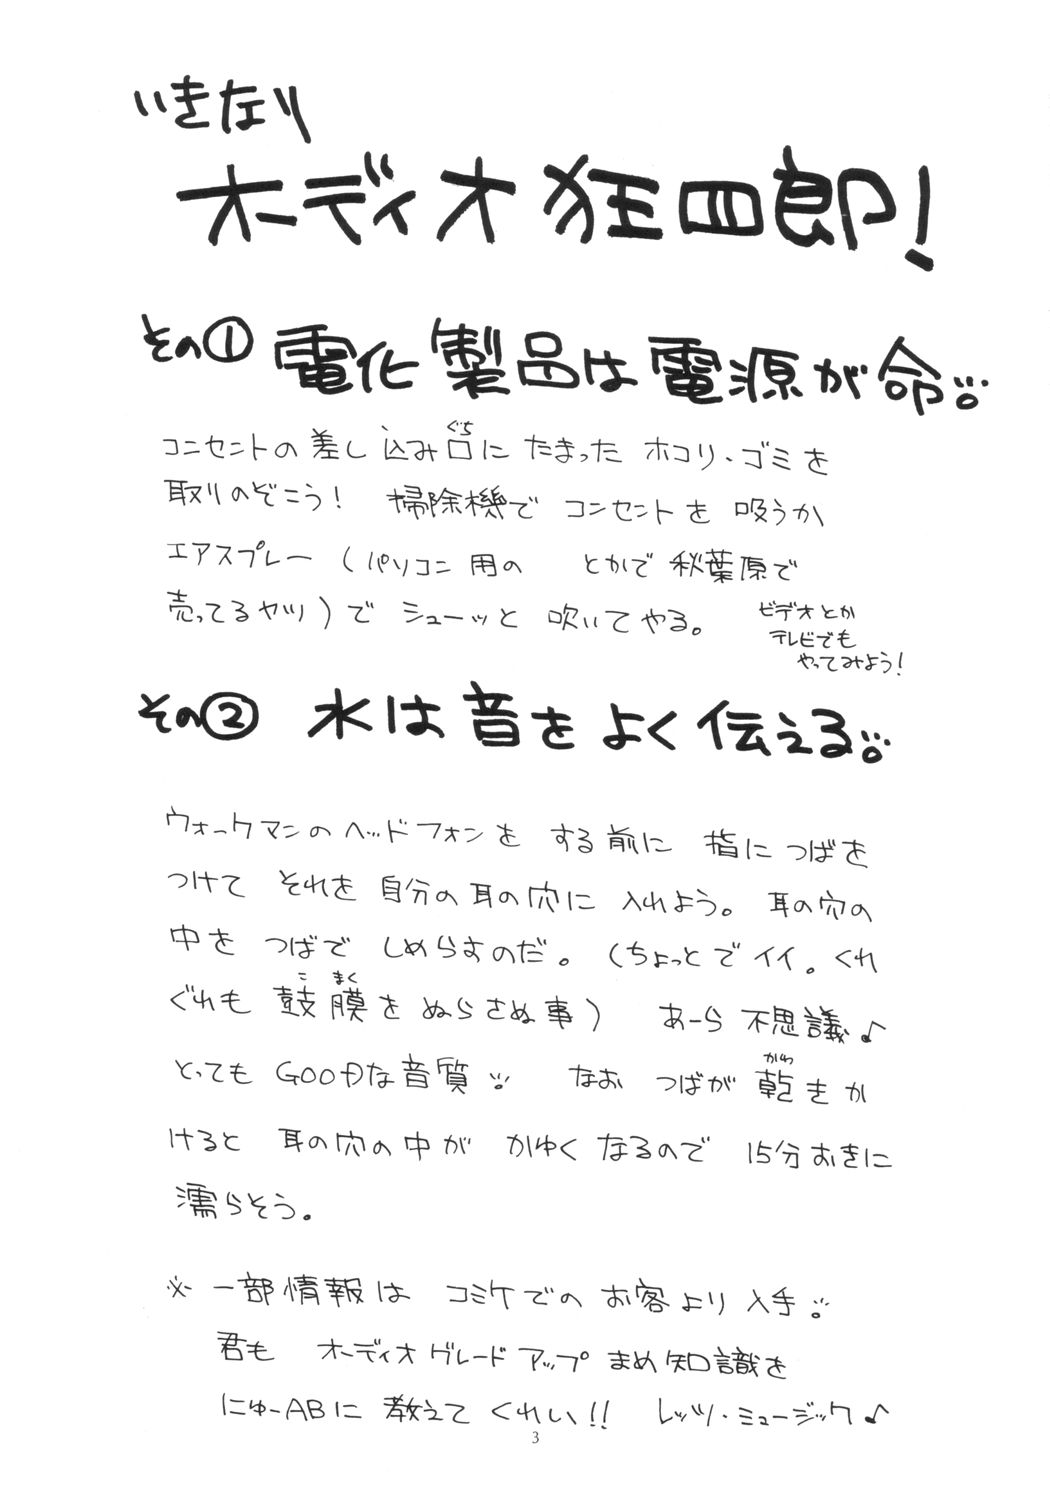 いきなり
オーディオ狂四郎!
その① 電化製品は電源が命。
コンセントの差し込み口にたまった ホコリ・ゴミを
ぐち
取りのぞこう! 掃除機で コンセントを 吸うか
エアスプレー (パソコン用の とかで 秋葉原で
売ってるヤツ)で シューッと 吹いてやる。
ビデオとか
テレビでも
やってみよう!
その② 水は音をよく伝える。
ウォークマンのヘッドフォンを する前に 指につばを
つけて それを 自分の耳の穴に 入れよう。 耳の穴の
中を つばで しめらすのだ。 (ちょっとでイイ。くれ
ぐれも 鼓膜をぬらさぬ事) あーら 不思議♪
こ まく
とっても GOODな音質。 なお つばが 乾きか
かわ
けると 耳の穴の中が かゆくなるので 15分おきに
濡らそう。
※ 一部情報は コミケでの お客より 入手。
君も オーディオグレードアップ まめ知識を
にゅーABに 教えて くれい!! レッツ・ミュージック♪
3